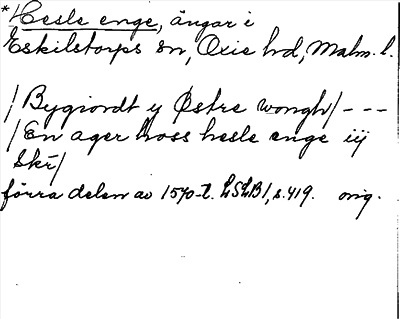 *Hesle enge, ängar i
Eskilstorps sn, Oxie hd, Malm. l.
/Bygiordt y Østre wongh/ - - -
/En ager hoss hesle enge iij
Skr/
förra delen av 1570-t. LSLB1, s. 419. orig.